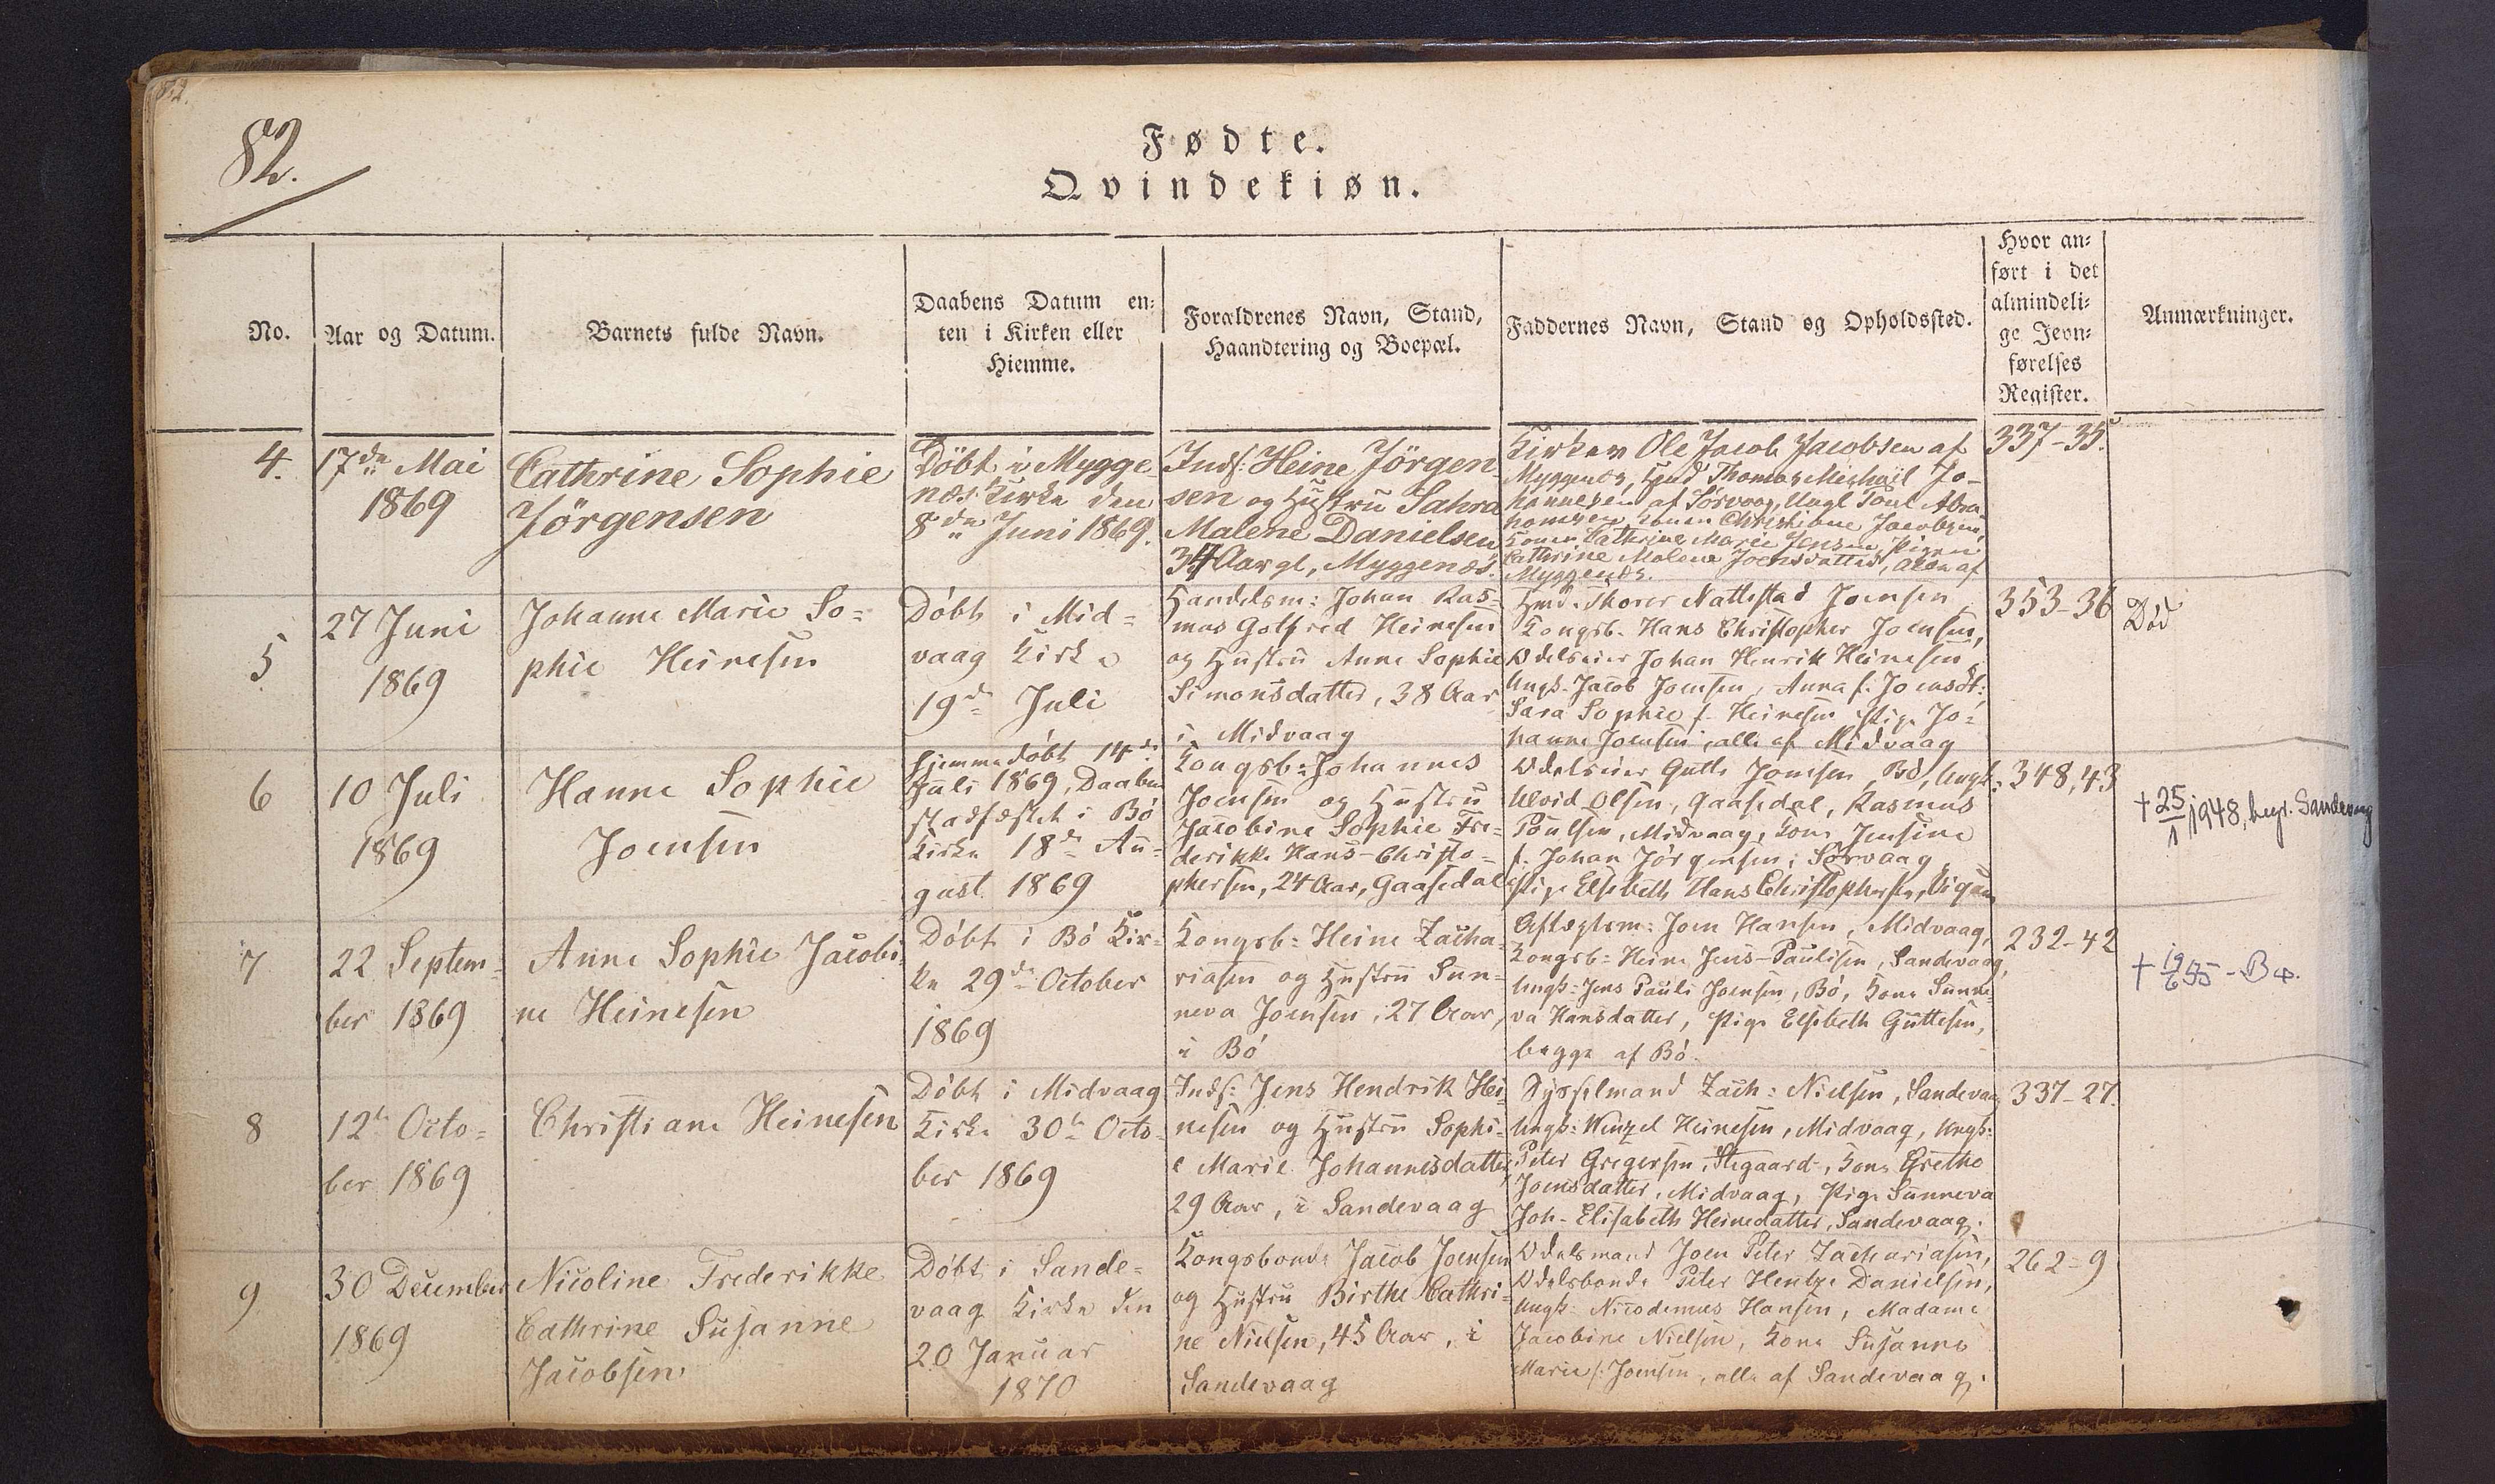 82.
82.
Fødte.
Qvindekiøn.
No.
Aar og Datum.
Barnets fulde Navn.
Daabens Datum en-
ten i Kirken eller
Hiemme.
Forældrenes Navn, Stand,
Haandtering og Boepæl.
Faddernes Navn, Stand og Opholdssted.
Hvor an-
ført i det
almindeli-
ge Jevn-
førelses
Register.
Anmærkninger.
4.
17de Mai
1869
Cathrine Sophie
Jörgensen
Döbt i Mygge
næs Kirke den
8de Juni 1869.
Inds: Heine Jörgen-
sen og Hustru Sahra
Malene Danielsen
34 Aar gl, Myggenæs.
Kirkev Ole Jacob Jacobsen af
Myggenæs, Hmd Thomas Michael Jo-
hannesen af Sörvaag, Ungk Poul Abra-
hamsen, Konen Christiane Jacobsen,
Konen Cathrine Marie Jensen, Pigen
Cathrine Malene Joensdatter, alle af
Myggenæs.
337-35.
5
27 Juni
1869
Johanne Marie So-
phie Heinesen
Döbt i Mid-
vaag Kirke
19de Juli
Handelsm: Johan Ras-
mus Golfred Heinesen
og Hustru Anne Sophie
Simonsdatter, 38 Aar
i Midvaag
Hmd. Thorer Nattestad Joensen
Kongsb. Hans Christopher Joensen,
Odelseier Johan Henrik Heinesen
Ungk. Jacob Joensen, Anna f. Joensdt:
Sara Sophie f. Heinesen Pige Jo-
hanne Joensen, alle af Midvaag
353-36
Död
6
10 Juli
1869
Hanne Sophie
Joensen
Hjemmedöbt 14de
Juli 1869, Daaben
stadfæstet i Bö
Kirke 18de Au-
gust 1869
Kongsb: Johannes
Joensen og Hustru
Jacobine Sophie Fre-
derikke Hans-Christo-
phersen, 24 Aar, Gaasedal
Odelseier Gutte Joensen, Bö, Ungk:
Ulvid Olsen, Gaasedal, Rasmus
Poulsen, Midvaag, Kone Jensine
f. Johan Jörgensen, Sörvaag
Pige Elsebeth Hans Christophersen,
348,43
+ 25/1 1948, begr. Sandevaag
7
22 Septem-
ber 1869
Anne Sophie Jacobi-
ne Heinesen
Döbt i Bö Kir-
ke 29de October
1869
Kongsb: Heine Zacha-
riasen og Hustru Sun-
neva Joensen, 27 Aar,
i Bö
Aftægtsm: Joen Hansen, Midvaag,
Kongsb: Heine Jens-Paulisen, Sandevaag,
Ungk: Jens Pauli Joensen, Bö, Kone Sunne-
va Hansdatter, Pige Elsebeth Guttesen,
begge af Bö.
232-42
+ 19/6 55 - Bø.
8
12te Octo-
ber 1869
Christiane Heinesen
Döbt i Midvaag
Kirke 30te Octo-
ber 1869
Inds: Jens Hendrik Hei-
nesen og Hustru Sophi-
e Marie Johannesdatter,
29 Aar, i Sandevaag
Sysselmand Zach: Nielsen, Sandevaag
Ungk: Wenzel Heinesen, Midvaag, Ungk:
Peter Gregersen, Stegaard, Kone Grethe
Joensdatter, Midvaag, Pige Sunneva
Joh- Elisabeth Heinedatter, Sandevaag.
337-27.
9
30 December
1869
Nicoline Frederikke
Cathrine Susanne
Jacobsen
Döbt i Sande-
vaag Kirke den
20 Januar
1870
Kongsbonde Jacob Joensen
og Hustru Birthe Cathri-
ne Nielsen, 45 Aar, i
Sandevaag
Odelsmand Joen Peter Zachariasen,
Odelsbonde Peter Hentze Danielsen,
Ungk: Nicodemus Hansen, Madame
Jacobine Nielsen, Kone Susanne
Marie f. Joensen, alle af Sandevaag.
262-9